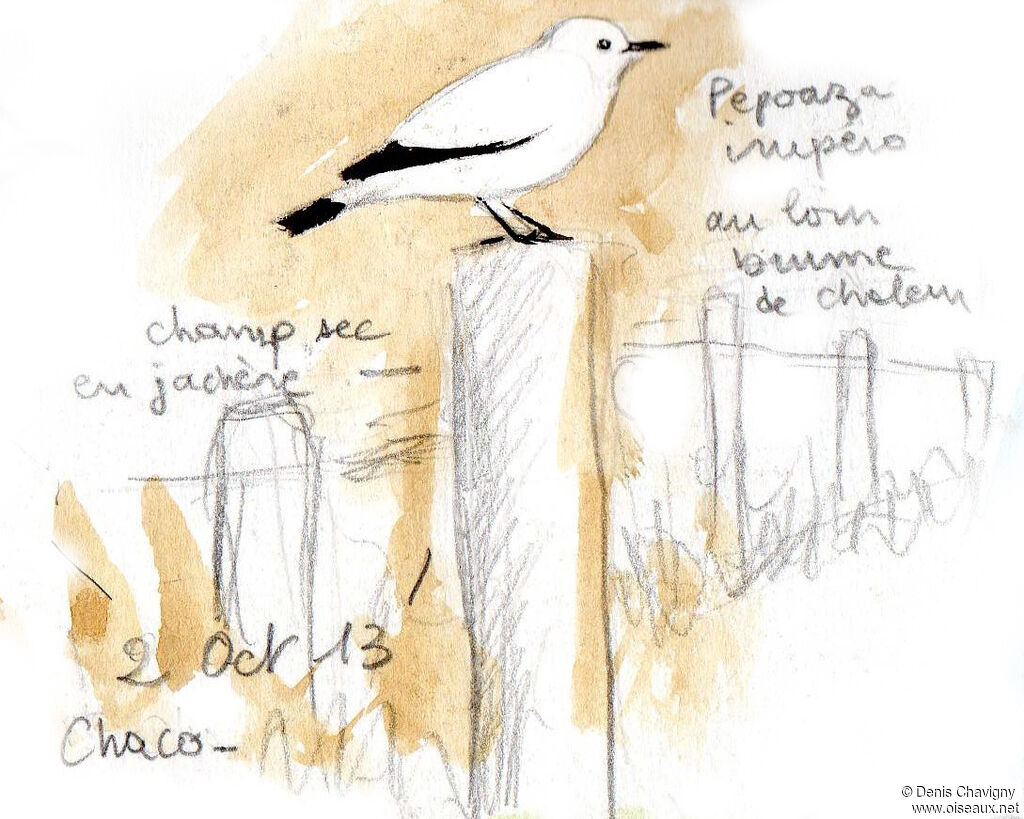 Pépoaza
impéro
au loin
brume
de chaleur
champ sec
en jachère
2 Oct 13
Chaco-
© Denis Chavigny
www.oiseaux.net